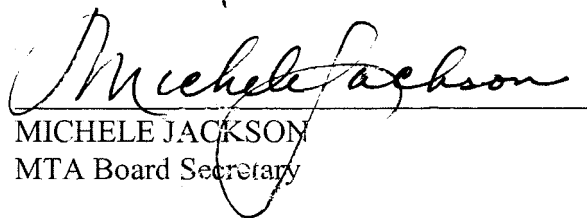 Michele Jackson
MICHELE JACKSON
MTA Board Secretary